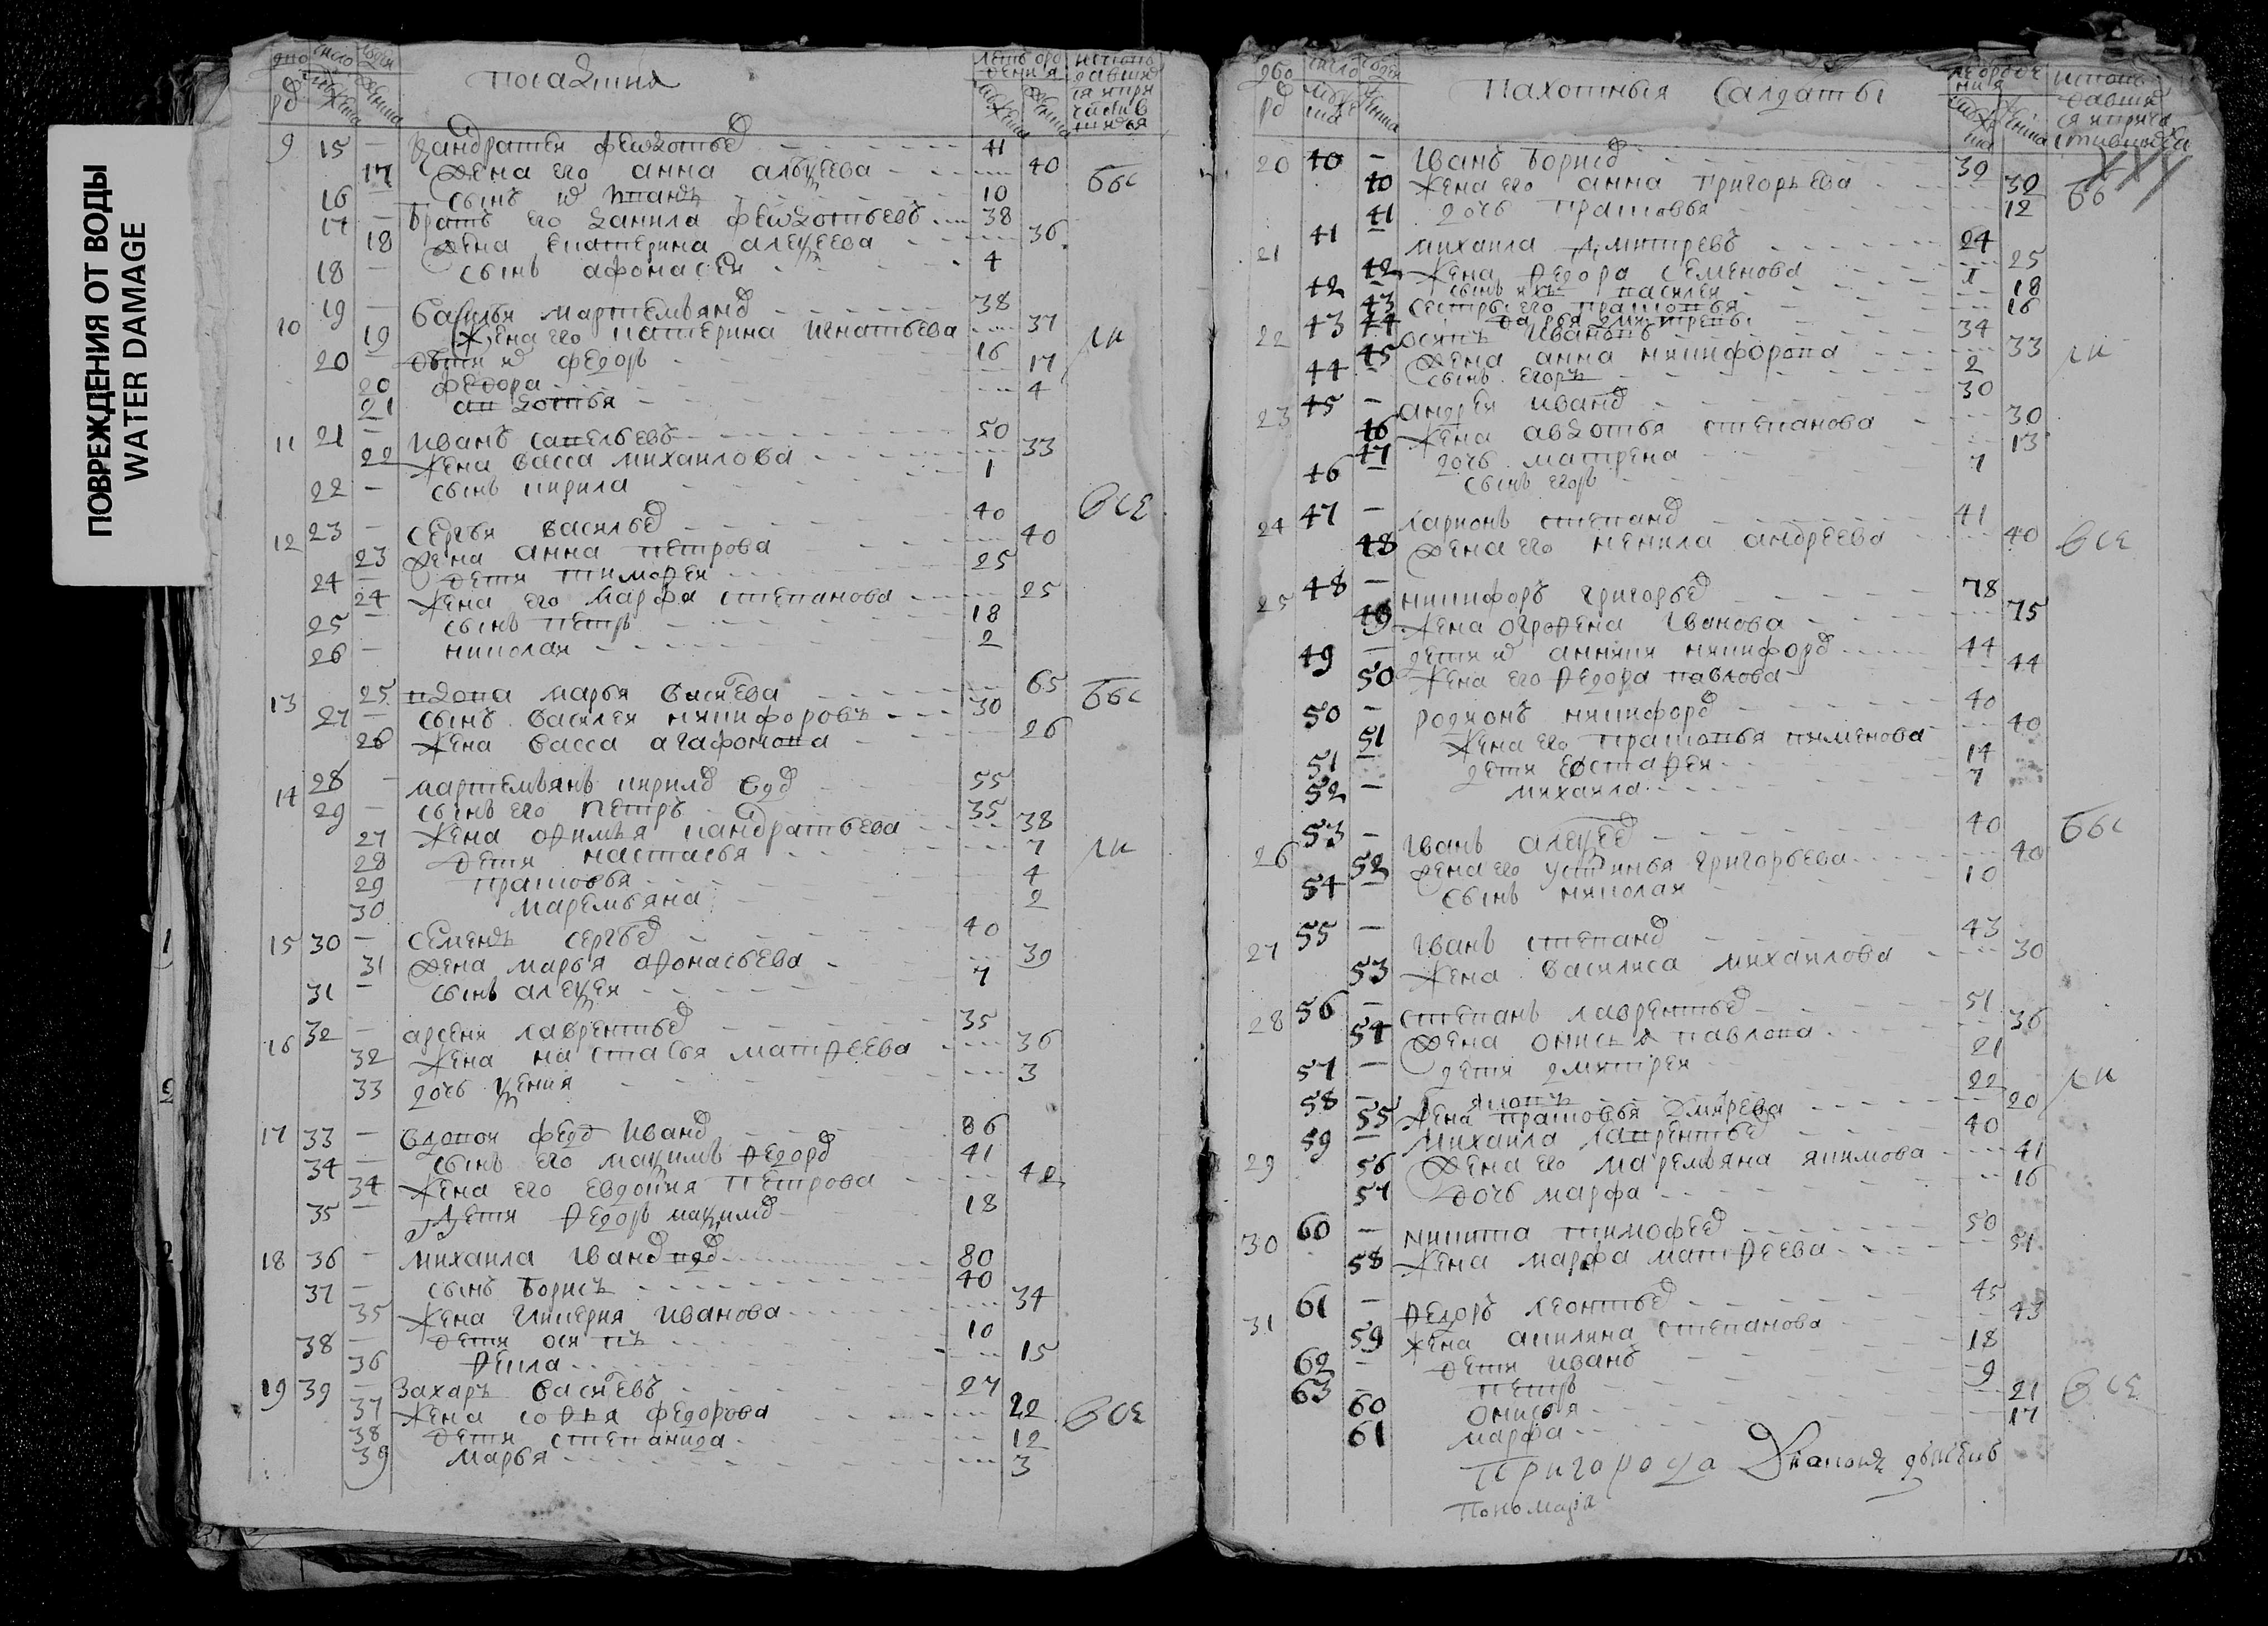 ПОВРЕЖДЕНИЯ ОТ ВОДЫ
WATER DAMAGE
9 15 – Кандратей Федотьев 41
17 Жена его анна алексеева 40
все
16 – сынъ их 10
17 – братъ его данила Федотьевъ 38
18 Жена екатерина алексеева 36
18 – сынъ афонасей 4
10 19 – василья мартемьянов 38
19 Жена его катерина игнатьева 37
20 дети их федоръ 16 17
20 федора 4
21 авдотья
11 21 – иванъ савельевъ 50
22 Жена васса михаилова 33
22 – сынъ кирила 1
все
12 23 – сергѣй васильев 40
23 Жена анна петрова 40
24 – дети тимофей 25
24 Жена его марфа степанова 25
25 – сынъ петръ 18
26 – николай 2
13 25 вдова марья васильева 65
все
27 – сынъ василей никифоровъ 30
26 Жена васса агафонова 26
14 28 – мартемьянъ кирилов вдов 55
29 – сынъ его петръ 35
27 Жена афимья кандратьева 38
28 дети настасья 7
29 прасковья 4
30 маремьяна 2
15 30 – семенъ сергѣев 40
31 Жена марья афонасьева 39
31 – сынъ алексей 7
16 32 – арсеня лаврентьев 35
32 Жена настасья матфеева 36
33 дочь ксения 3
17 33 – вдовой федор иванов 86
34 сынъ его максимъ федоров 41
34 Жена его евдокия петрова 42
35 – дети федоръ максимов 18
18 36 – михаила иванов вдов 80
37 – сынъ борисъ 40
35 Жена гликерия иванова 34
38 – дети осипъ 10
36 фекла 15
19 39 – Захаръ васильевъ 27
37 Жена софья федорова 22
все
38 дети степанида 12
39 марья 3
Пахотныя Салдаты
20 40 – иванъ борисов 39
40 Жена его анна григорьева 39
41 дочь прасковья 12
21 41 – михаила дмитревъ 24
42 Жена федора семенова 25
42 – сынъ ихъ василей 1
43 сестры его прасковья 18
44 дарья дмитрева 16
22 43 осипъ ивановъ 34
45 Жена анна никифорова 33
44 – сынъ егоръ 2
23 45 – андрей иванов 30
46 Жена авдотья степанова 30
47 дочь матрена 13
46 – сынъ егоръ 7
24 47 – ларионъ степанов 41
48 Жена его ненила андреева 40
все
25 48 – никифоръ григорьев 78
49 Жена огрофена иванова 75
49 – дети их никифоров 44
50 Жена его федора павлова 44
50 – родионъ никифоров 40
51 Жена его прасковья пименова 40
51 – дети евстафей 14
52 – михаила 7
26 53 – иванъ алексеев 40
все
52 Жена его устинья григорьева 40
54 – сынъ николай 10
27 55 – иванъ степанов 43
53 Жена василиса михаилова 30
28 56 – степанъ лаврентьев 51
54 Жена онисья павлова 36
57 – дети дмитрей 21
58 – яковъ 22
55 Жена прасковья 20
29 59 – михаила лаврентьев 40
56 Жена его маремьяна якимова 41
57 дочь марфа 16
30 60 – никита тимофеев 50
58 Жена марфа матфеева 51
31 61 – федоръ леонтьев 45
59 Жена акилина степанова 43
62 – дети иванъ 18
63 – петръ 9
60 онисья 21
все
61 марфа 17
Пригорода
Пономаря